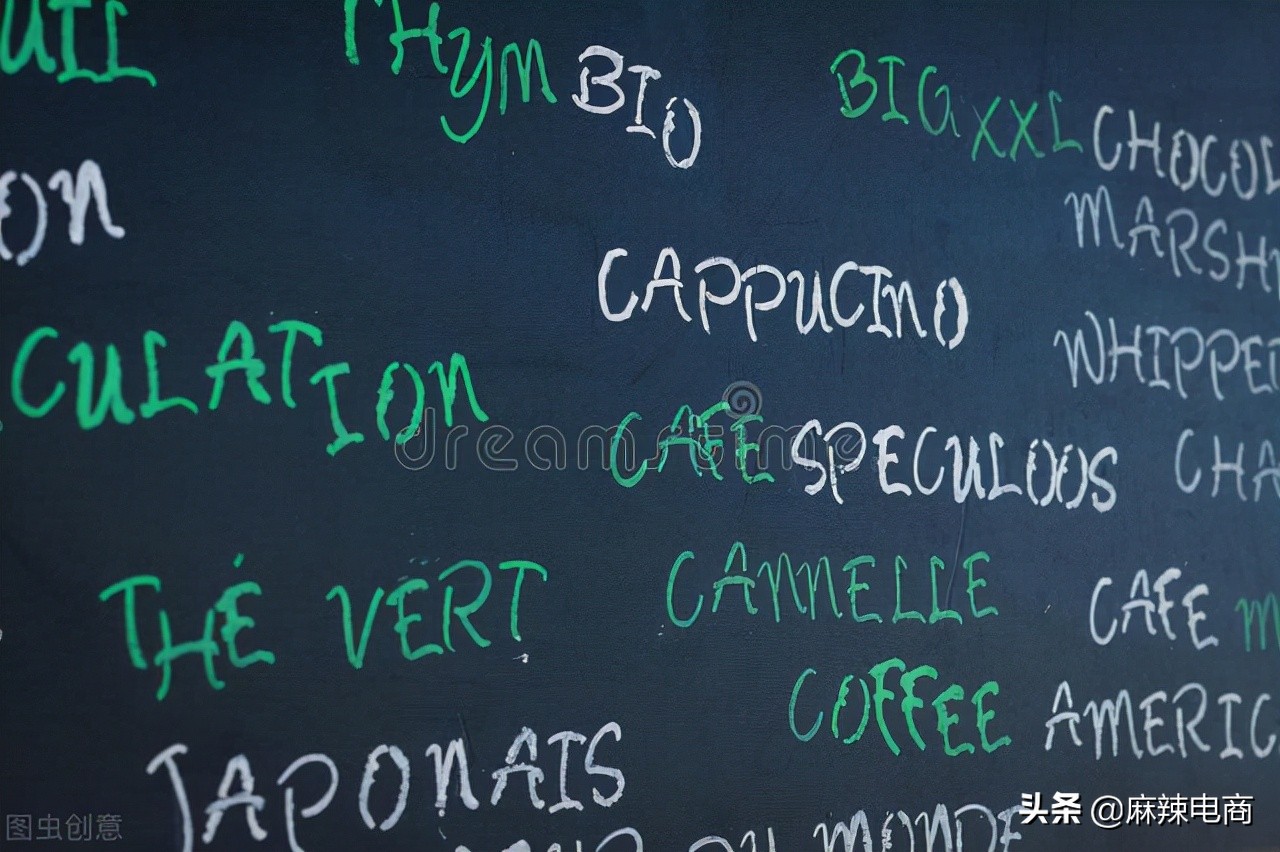 THYM BIO
BIG XXL CHOCOL
ON
MARSH
CAPPUCINO
WHIPPE
CULATION
CAFE SPECULOOS
CHA
dreamstime
THÉ VERT
CANNELLE
CAFE M
COFFEE AMERIC
JAPONAIS
MONDE
头条 @麻辣电商
图虫创意